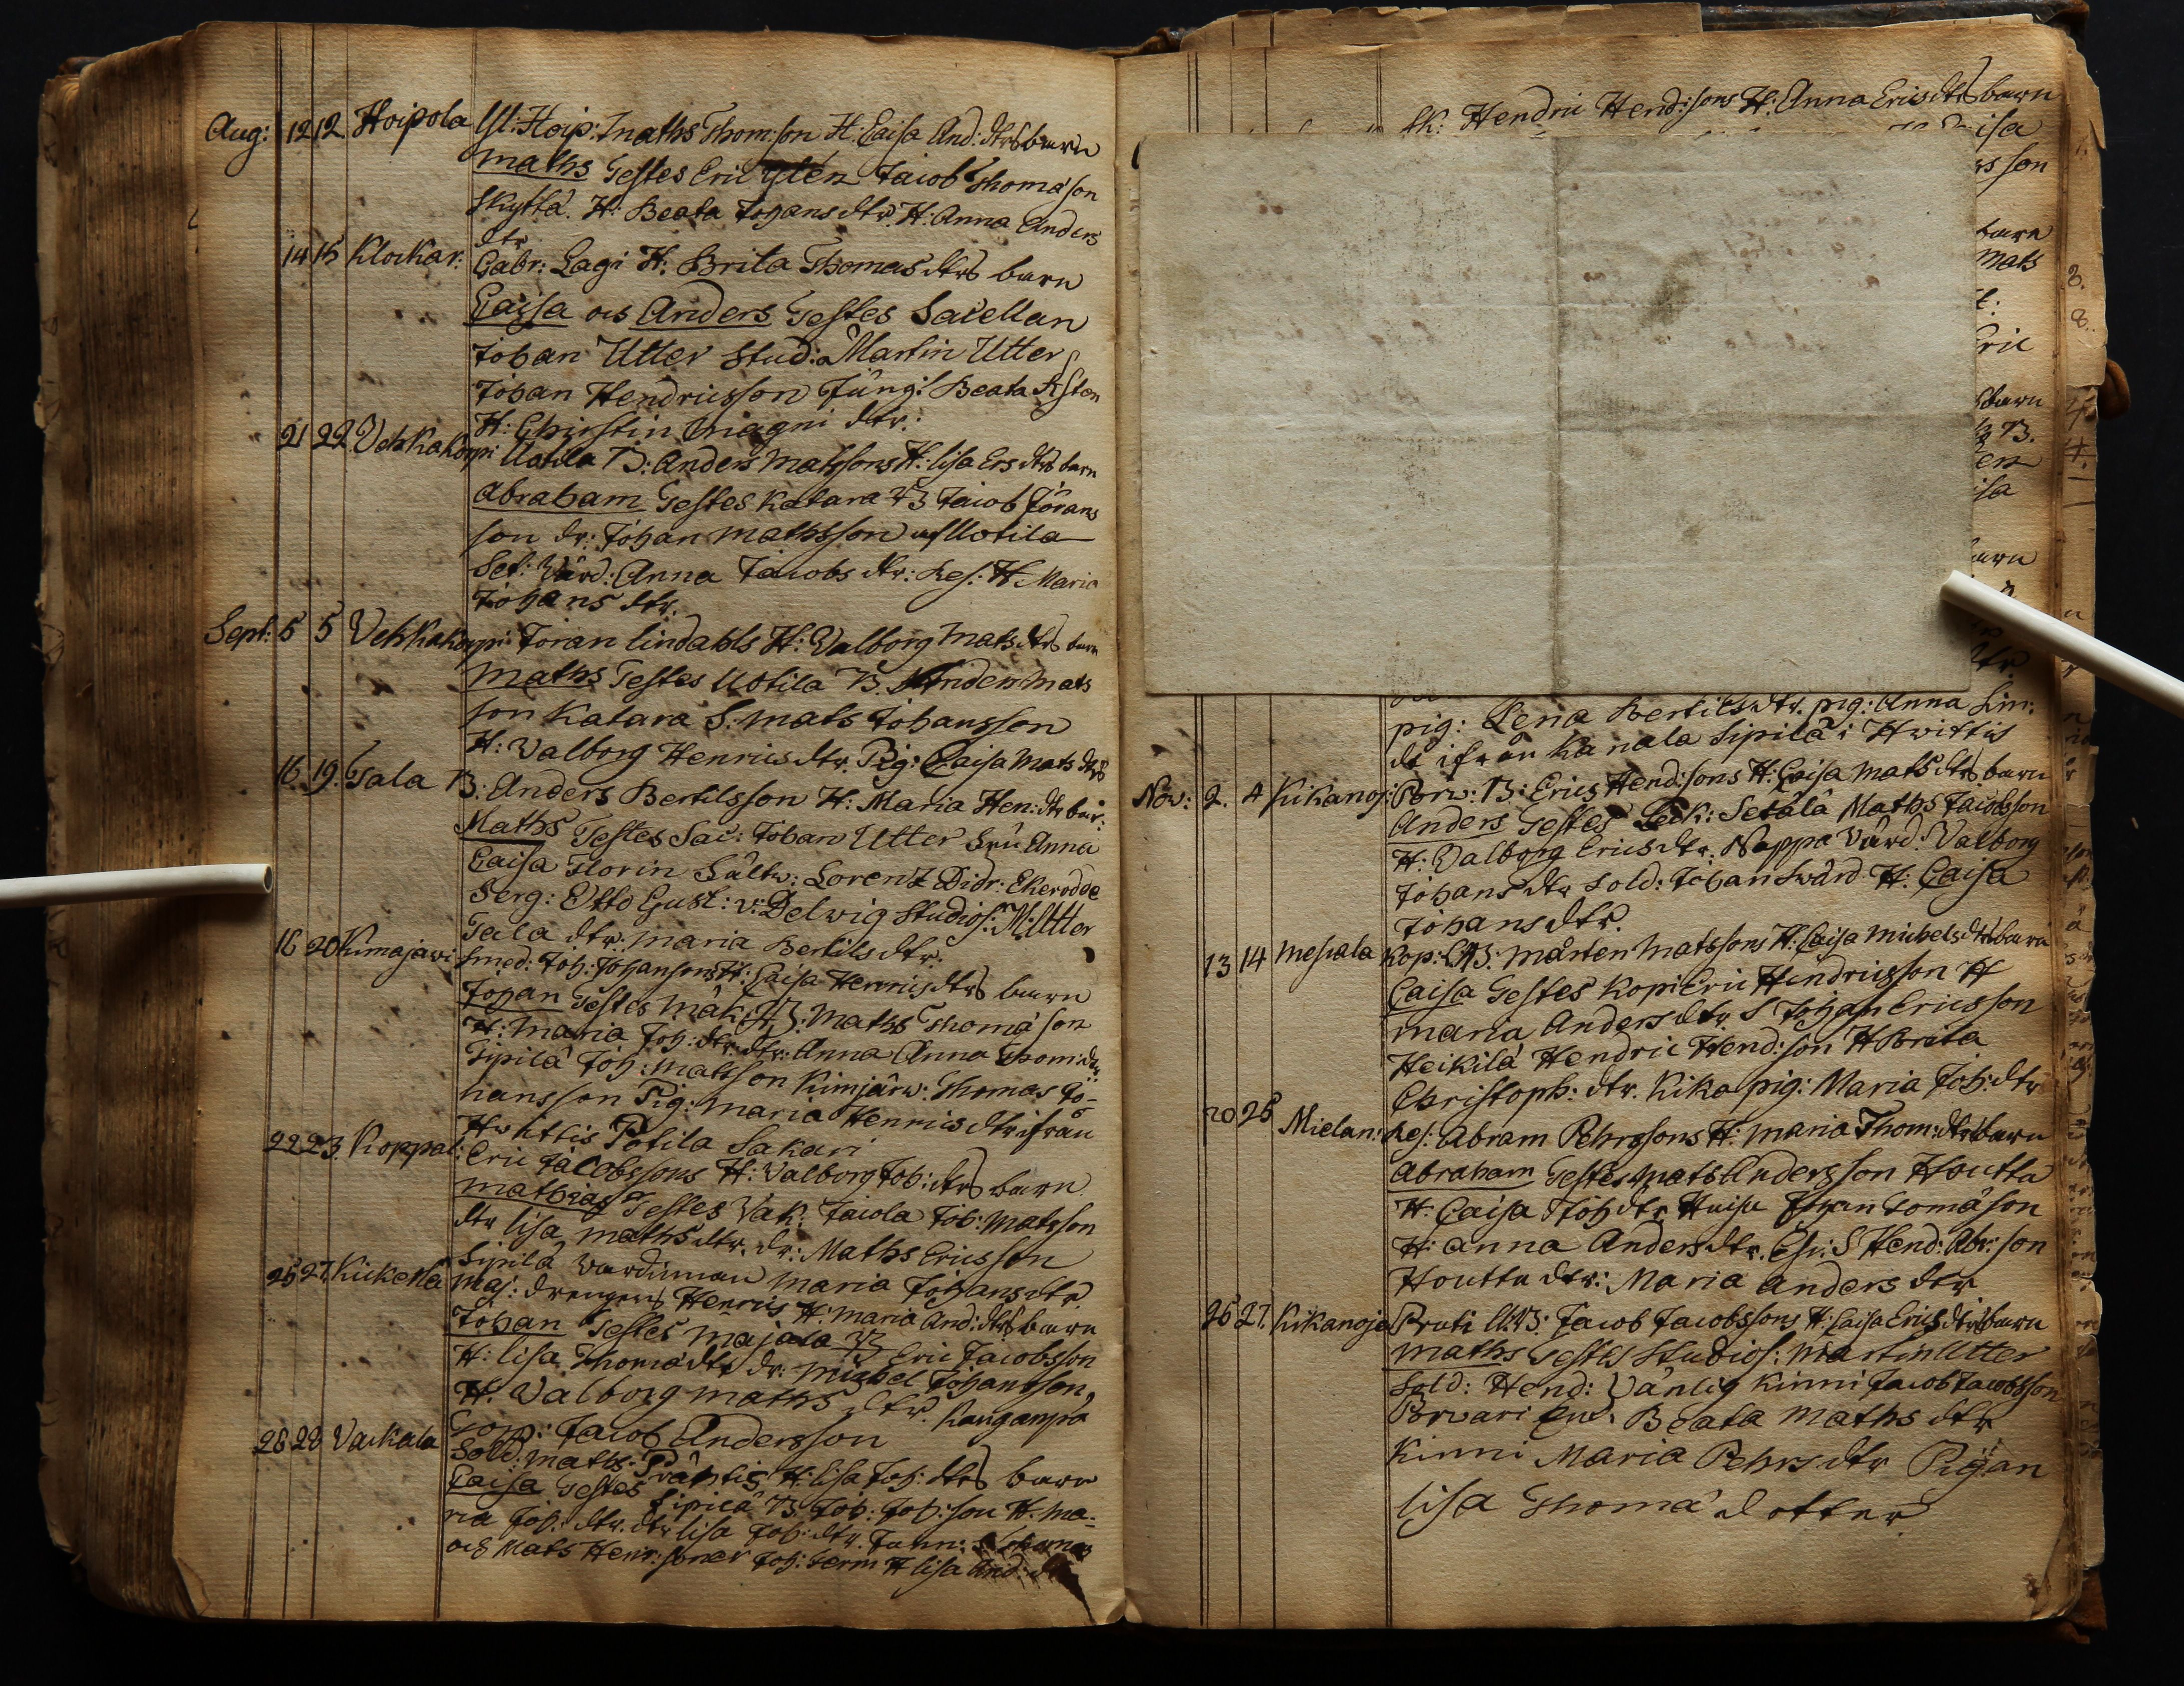 Aug: 12 12 Hoipola Yl: Hoip: Maths Thom:son H: Caisa And: dtrs barn
Maths Testes Eric Glen Jacob Thomason
Skyttä. H: Beata Johans dtr. H: Anna Anders
dtr
14 15 Klockar: Gabr: Lagi H: Brita Thomas dtrs barn
Caisa och Anders Testes Sacellan
Johan Utter Stud: Martin Utter
Johan Hendricsson Jungf: Beata
H: Christin Magni dtr.
21 22 Vehkakorpi Uotila B: Anders Matssons H: Lisa Ers dtrs barn
Abraham Testes Katara B Jacob Jörans
son dr: Johan Mathsson af Uotila
Set: Wärd: Anna Jacobs dtr: Res: H Maria
Johans dtr.
Sept: 5 5 Vehkakorpi Jöran Lindahls H: Valborg Mats dtrs barn
Maths Testes Uotila B. Anders Mats
son Katara S. Mats Johansson
H: Valborg Henrics dtr. Pig: Caisa Mats dtr
16 19. Tala B: Anders Bertilsson H: Maria Hen: dtr bar:
Maths Testes Sac: Johan Utter Fru Anna
Caisa Florin Fältw: Lorentz Didr: Ekerodde
Serg: Otto Gust: v: Delwig Studios: M: Utter
Tala dtr: Maria Bertils dtr.
16 20 Kimajärwi Smed: Joh: Johansons H: Caisa Henrics dtrs barn
Johan Testes Mäk: B: Maths Thomason
H: Maria Joh: dtr. dtr: Anna Anna Thom: dtr
Sipilä Joh: Matsson Kimjärw: Thomas Jo-
hansson Pig: Maria Henrics dtr ifrån
Hwittis Potila Sakari
22 23. Koppal: Eric Jacobssons H: Valborg Joh: dtrs barn
Mathias Testes Vak: Jacola Joh: Matsson
dtr Lisa Maths dtr. dr: Maths Ericsson
Sipilä Maria Johans dtr.
25 27. Kickerla Maj: drengens Henrics H: Maria And: dtrs barn
Johan Testes Majala B Eric Jacobsson
H: Lisa Thoma dtr dr: Michel Johansson,
H: Valborg Maths dtr. Kanganpä
Corp: Jacob Andersson
26 28 Vackala Sold: Maths Präktig H: Lisa Joh: dtrs barn
Caisa Testes Sipilä B. Joh: Joh: son H: Ma-
ria Joh: dtr. dtr Lisa Joh: dtr.
och Mats Henr: soner Joh: H Lisa And:
sk: Hendric Hend:sons H: Anna Erics dtrs barn
isa
son
barn
Mats
Eric
barn
B.
isa
barn
dtr
pig: Lena Bertils dtr. pig: Anna Sim:
dt ifrån Sipilä i Hwittis
Nov: 2. 4 Kikanoj: Porw: B: Erics Hend:sons H: Caisa Mats dtrs barn
Anders Testes Setälä Maths Jacobsson
H: Valborg Erics dtr. Nappa Värd: Valborg
Johans dtr Sold: Johan Swärd H: Caisa
Johans dtr.
13 14 Mesiala Kop: B: Mårten Matssons H: Caisa Michels dtrs barn
Caisa Testes Kopi Eric Hendricsson H
Maria Anders dtr S Johan Ericsson
Heikilä Hendric Hend:son H Brita
Christoph: dtr. Kika pig: Maria Joh: dtr
20 25 Mielan: Res: Abram Pehrssons H: Maria Thom: dtrs barn
Abraham Testes Mats Andersson Houtta
H: Caisa Joh dtr Johan Tomason
H: Anna Anders dtr. S Hend: Abr: son
Houtta dtr: Maria Anders dtr
26 27. Kikanoja Pruti B: Jacob Jacobssons H: Caisa Erics dtrs barn
Maths Testes Studios: Martin Utter
Sold: Hend: Vänlig Kinni Jacob Jacobsson
Porvari Beata Maths dtr
Kinni Maria Pehrs dtr Pigan
Lisa Thoma dotter